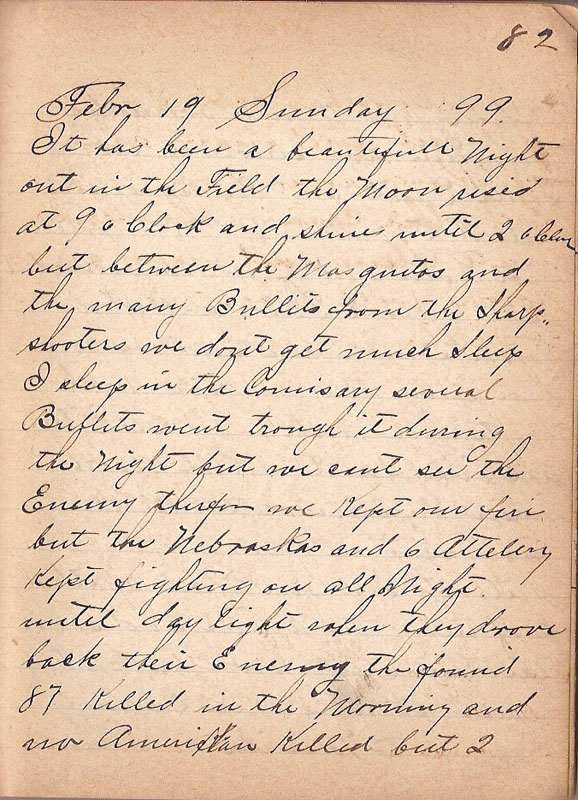 82
Febr 19 Sunday 99.
It has been a beautifull Night
out in the Field the Moon rised
at 9 o Clock and shines until 2 o Clock
but between the Mosquitos and
the many Bullits from the Sharp„
shooters we dont get much Sleep
I sleep in the Comisary several
Bullets went trough it during
the Night but we cant see the
Enemy therfor we Kept our fire
but the Nebraskas and 6 Attelery
Kept fighting on all Night.
until day light when they drove
back their Enemy the found
87 Killed in the Morning and
no American Killed but 2